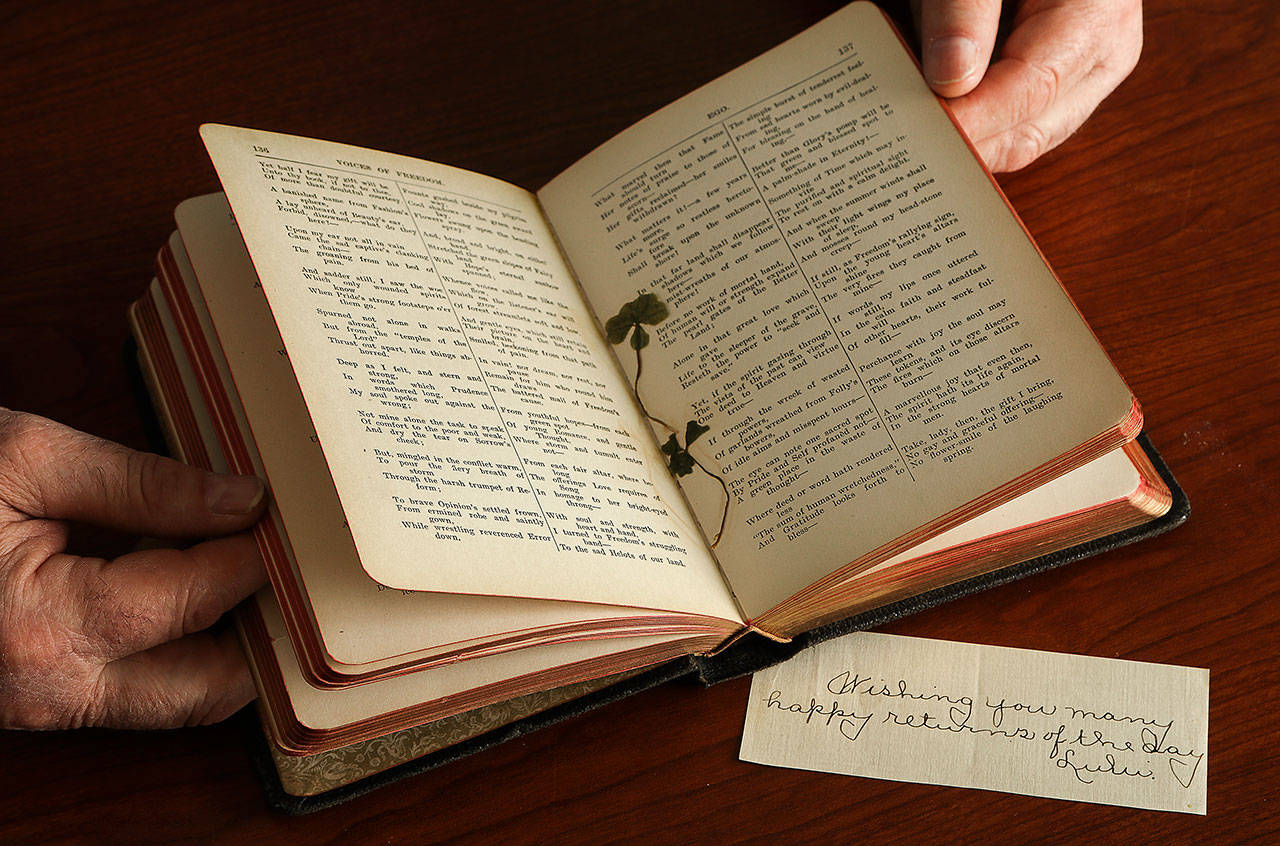 136
VOICES OF FREEDOM.
Yet half I fear my gift will be
Unto thy book, if not to thee,
Of more than doubtful courtesy.
A banished name from Fashion's
sphere,
A lay unheard of Beauty's ear,
Forbid, disowned,—what do they
here?—
Upon my ear not all in vain
Came the sad captive's clanking
chain—
The groaning from his bed of
pain.
And sadder still, I saw the woe
Which only wounded spirits
know
When Pride's strong footsteps o'er
them go.
Spurned not alone in walks
abroad,
But from the "temples of the
Lord"
Thrust out apart, like things ab-
horred.
Deep as I felt, and stern and
strong,
In words which Prudence
smothered long,
My soul spoke out against the
wrong;
Not mine alone the task to speak
Of comfort to the poor and weak,
And dry the tear on Sorrow's
cheek;
But, mingled in the conflict warm,
To pour the fiery breath of
storm
Through the harsh trumpet of Re-
form;
To brave Opinion's settled frown,
From ermined robe and saintly
gown,
While wrestling reverenced Error
down.
Founts gushed beside my pilgrim
way,
Cool shadows on the
lay,
Flowers swung upon the bending
spray.
And, broad and bright, on either
hand,
Stretched the green slopes of Fairy
land,
With Hope's eternal sunbow
spanned;
Whence voices called me like the
flow,
Which on the listener's ear will
grow,
Of forest streamlets soft and low.
And gentle eyes, which still retain
Their picture on the heart and
brain,
Smiled, beckoning from that path
of pain.
In vain! nor dream, nor rest, nor
pause
Remain for him who round him
draws
The battered mail of Freedom's
cause.
From youthful hopes—from each
green spot
Of young Romance, and gentle
Thought,
Where storm and tumult enter
not—
From each fair altar, where belong
The offerings Love requires of
Song
In homage to her bright-eyed
throng—
With soul and strength, with
heart and hand,
I turned to Freedom's struggling
band—
To the sad Helots of our land.
EGO.
137
What marvel then that Fame
should turn
Her notes of praise to those of
scorn—
Her gifts reclaimed—her smiles
withdrawn?
What matters it!—a few years
more,
Life's surge so restless hereto-
fore
Shall break upon the unknown
shore!
In that far land shall disappear
The shadows which we follow
here—
The mist-wreaths of our atmos-
phere!
Before no work of mortal hand,
Of human will or strength expand
The pearl gates of the Better
Land;
Alone in that great love which
gave
Life to the sleeper of the grave,
Resteth the power to "seek and
save."
Yet, if the spirit gazing through
The vista of the past can view
One deed to Heaven and virtue
true—
If through the wreck of wasted
powers,
Of garlands wreathed from Folly's
bowers,
Of idle aims and misspent hours—
The eye can note one sacred spot
By Pride and Self profaned not—
A green place in the waste of
thought—
Where deed or word hath rendered
less
"The sum of human wretchedness,"
And Gratitude looks forth to
bless—
The simple burst of tenderest feel-
ing
From sad hearts worn by evil-deal-
ing,
For blessing on the hand of heal-
ing,—
Better than Glory's pomp will be
That green and blessed spot to
me—
A palm-shade in Eternity!—
Something of Time which may in-
vite
The purified and spiritual sight
To rest on with a calm delight.
And when the summer winds shall
sweep
With their light wings my place
of sleep,
And mosses round my head-stone
creep—
If still, as Freedom's rallying sign,
Upon the young heart's altars
shine
The very fires they caught from
mine—
If words my lips once uttered
still,
In the calm faith and steadfast
will
Of other hearts, their work ful-
fill—
Perchance with joy the soul may
learn
These tokens, and its eye discern
The fires which on those altars
burn—
A marvellous joy that even then,
The spirit hath its life again,
In the strong hearts of mortal
men.
Take, lady, then, the gift I bring,
No gay and graceful offering—
No flower-smile of the laughing
spring.
Wishing you many
happy returns of the day
Lulu.